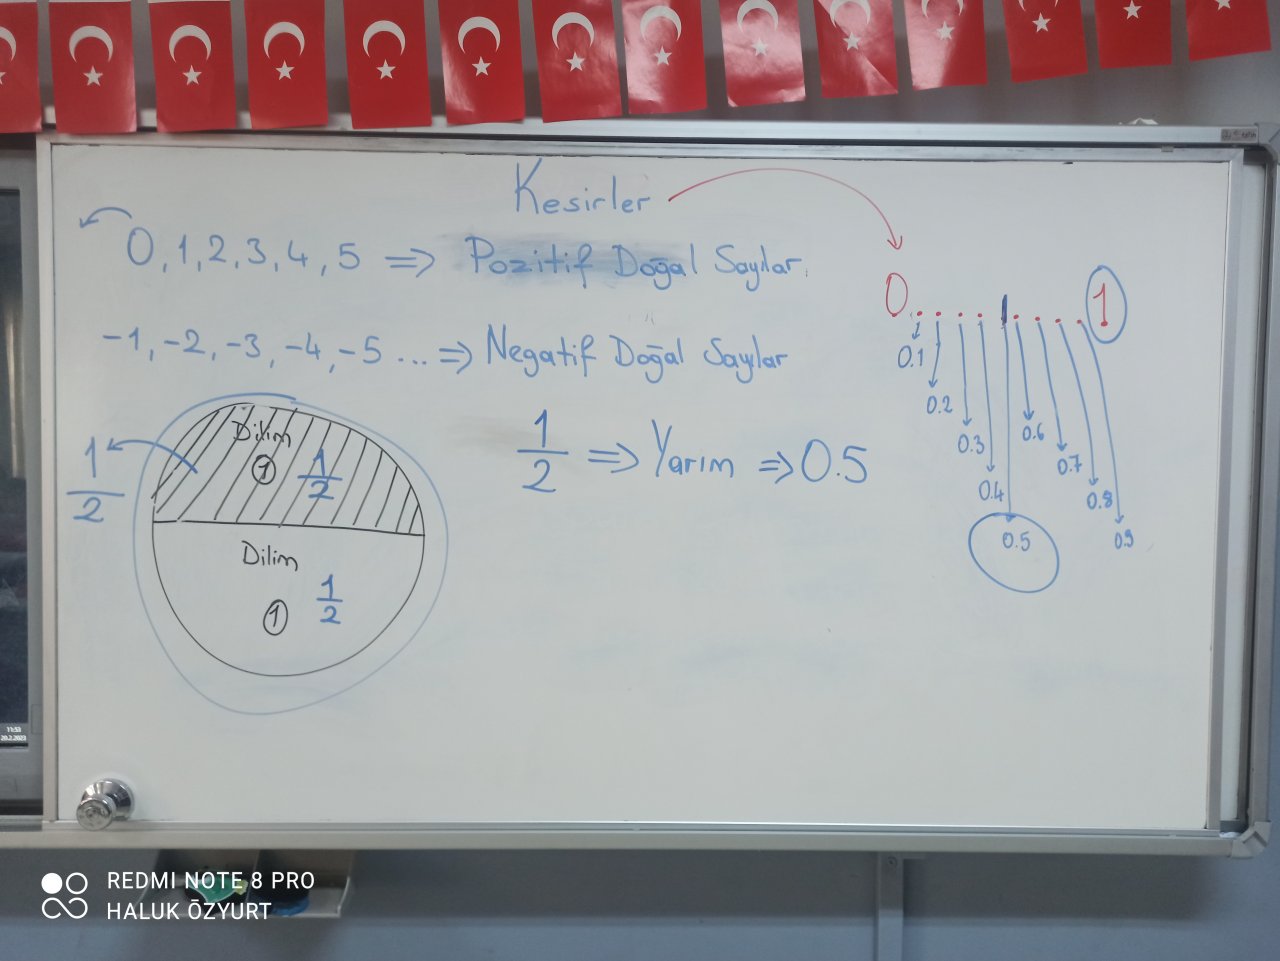 Kesirler
0, 1, 2, 3, 4, 5 => Pozitif Doğal Sayılar
-1, -2, -3, -4, -5 ... => Negatif Doğal Sayılar
1/2
Dilim
1 1/2
Dilim
1 1/2
1/2 => Yarım => 0.5
0 1
0.1
0.2
0.3
0.4
0.5
0.6
0.7
0.8
0.9
11:53
20.2.2023
REDMI NOTE 8 PRO
HALUK ÖZYURT